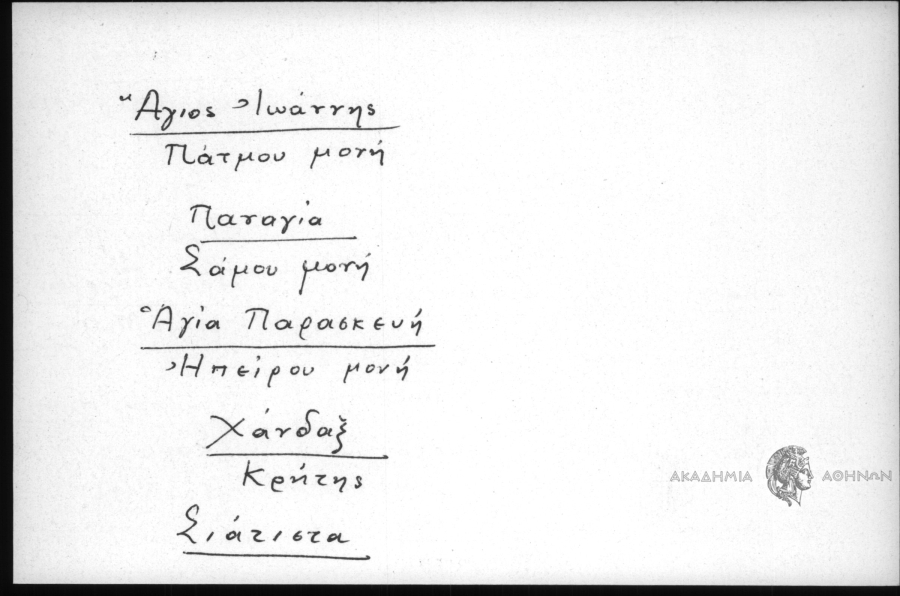 Ἅγιος Ἰωάννης
Πάτμου μονή
Παναγία
Σάμου μονή
Ἁγία Παρασκευή
Ἠπείρου μονή
Χάνδαξ
Κρήτης
Σιάτιστα
ΑΚΑΔΗΜΙΑ ΑΘΗΝΩΝ